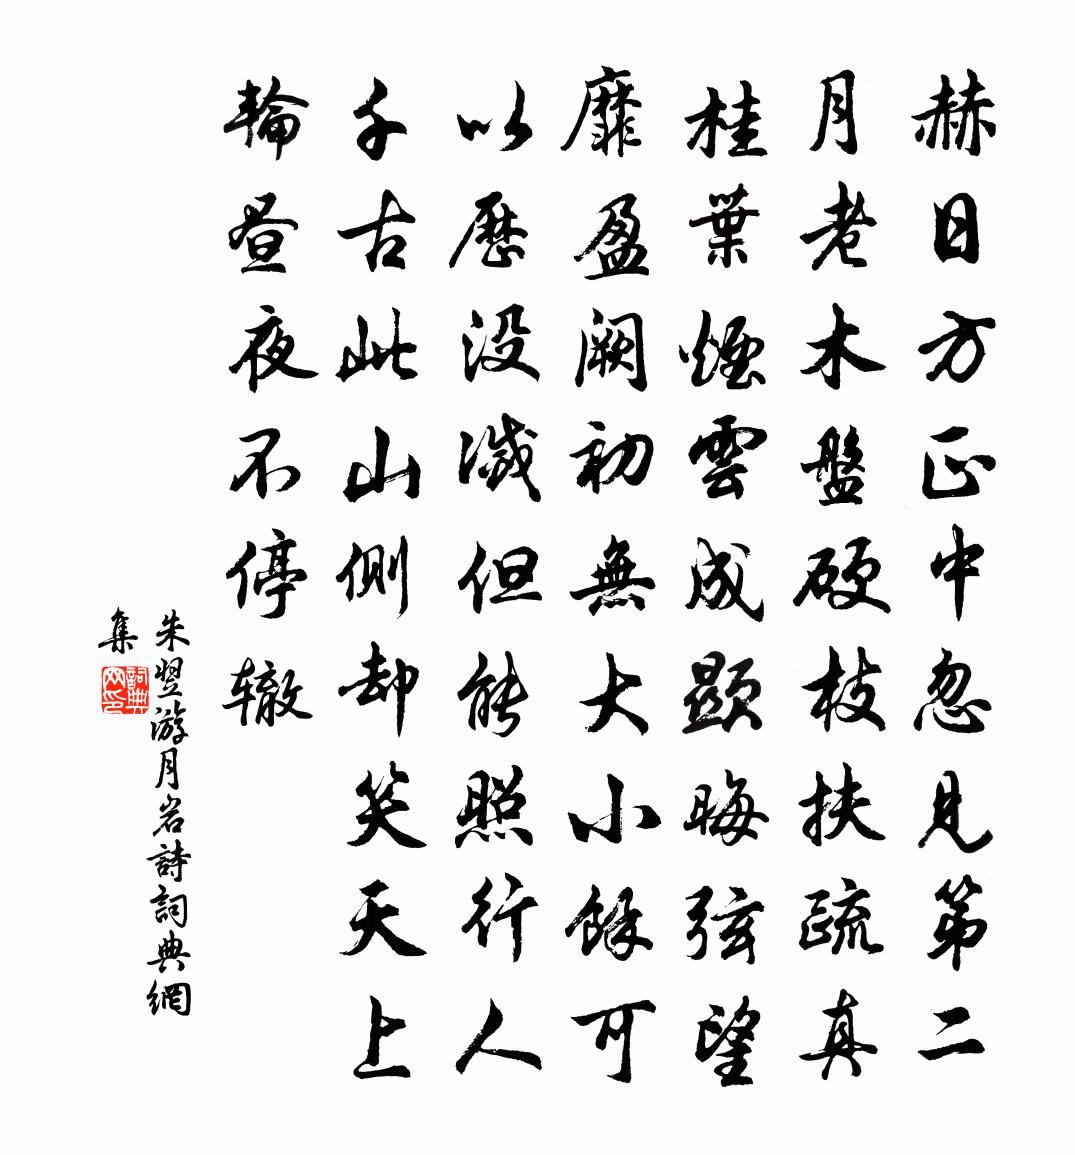 赫日方正中忽見第二
月老木盤硬枝扶疏真
桂葉煙雲成顯晦弦望
靡盈闕初無大小餘可
以歷沒滅但能照行人
千古此山側却笑天上
輪晝夜不停辙
朱翌游月岩詩詞典網
集
詞典网